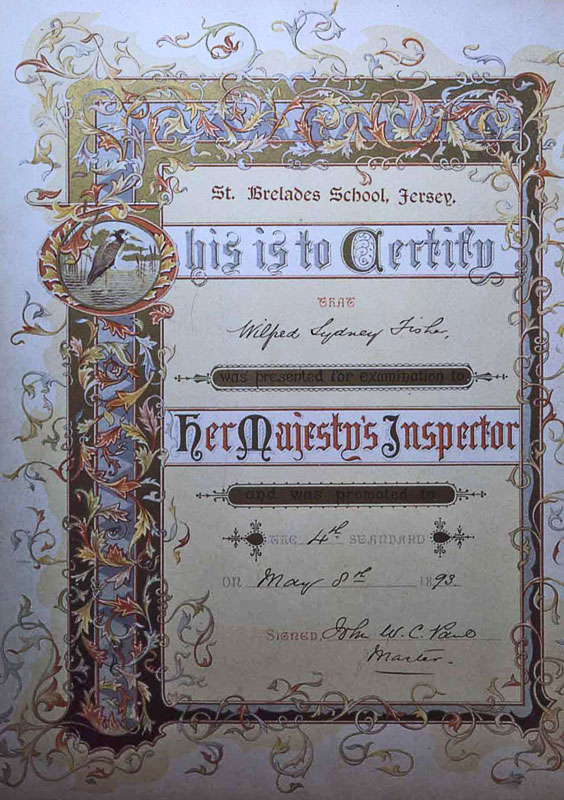 St. Brelades School, Jersey.
This is to Certify
THAT
Wilfred Sydney Fisher,
was presented for examination to
Her Majesty's Inspector
and was promoted to
THE 4th STANDARD
ON May 8th 1893.
SIGNED, John W. C.
Master.